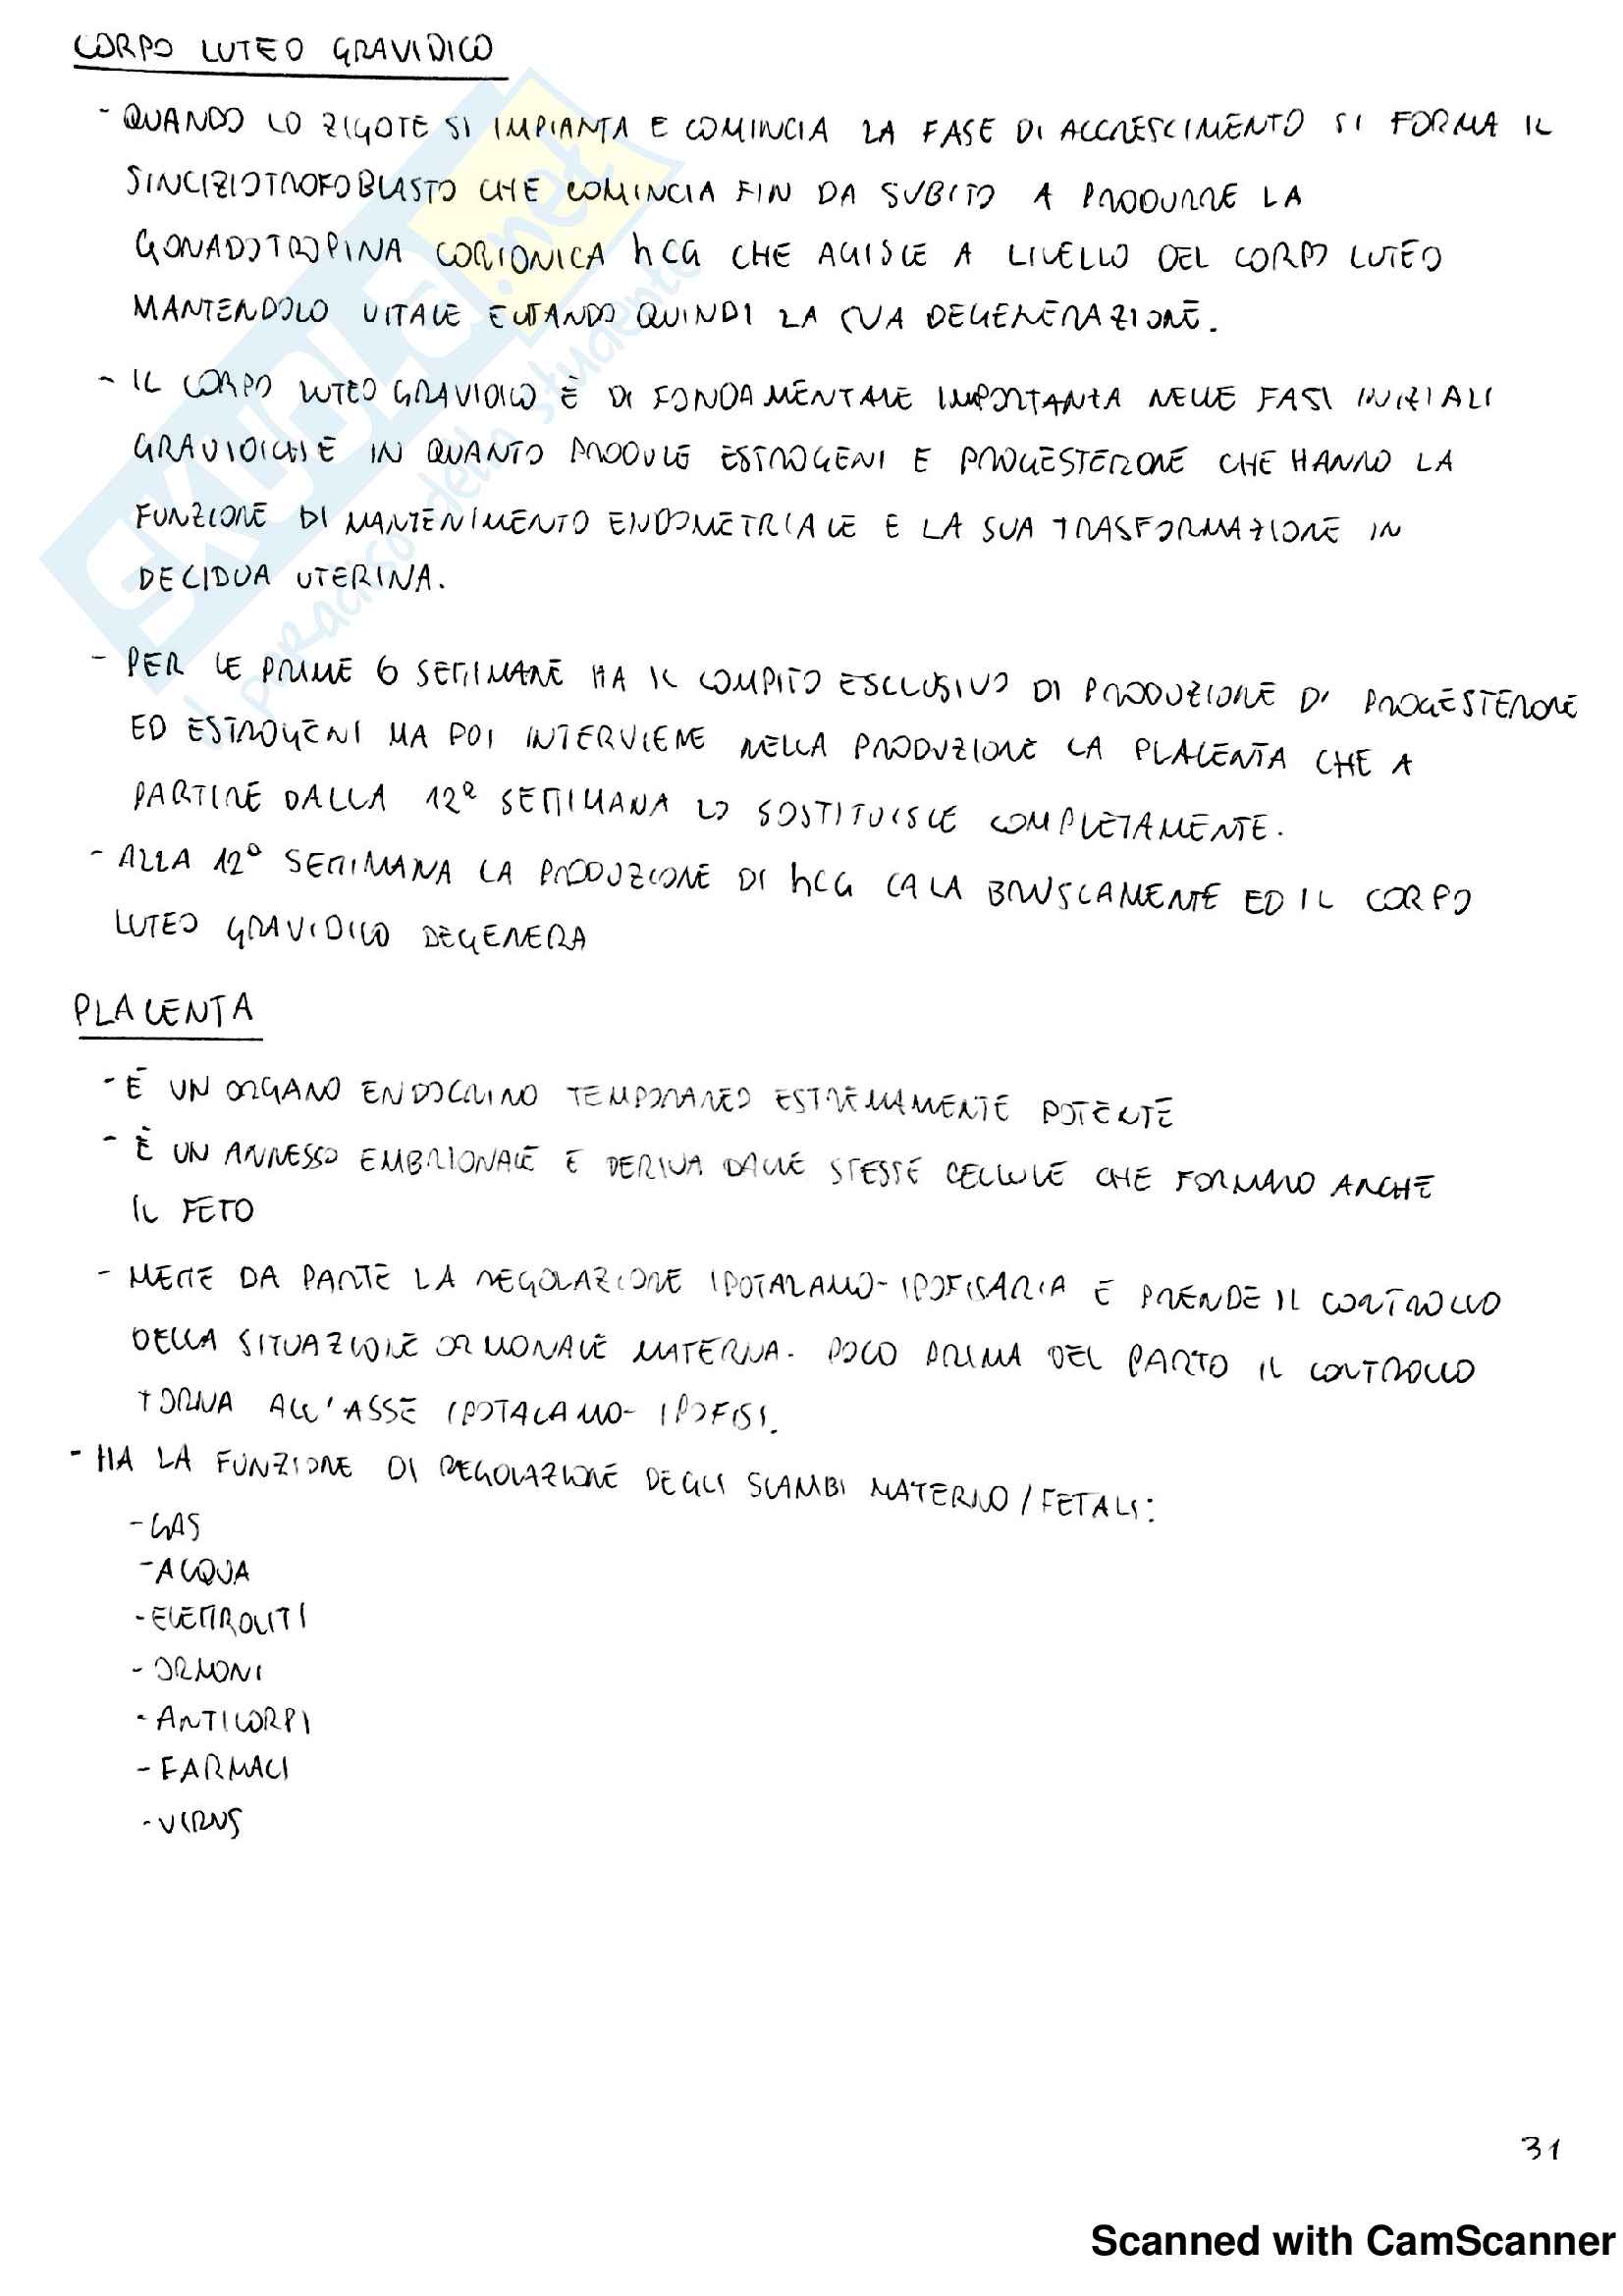 CORPO LUTEO GRAVIDICO
- QUANDO LO ZIGOTE SI IMPIANTA E COMINCIA LA FASE DI ACCRESCIMENTO SI FORMA IL
SINCIZIOTROFOBLASTO CHE COMINCIA FIN DA SUBITO A PRODURRE LA
GONADOTROPINA CORIONICA hCG CHE AGISCE A LIVELLO DEL CORPO LUTEO
MANTENDOLO VITALE EVITANDO QUINDI LA SUA DEGENERAZIONE.
- IL CORPO LUTEO GRAVIDICO È DI FONDAMENTALE IMPORTANZA NELLE FASI INIZIALI
GRAVIDICHE IN QUANTO PRODUCE ESTROGENI E PROGESTERONE CHE HANNO LA
FUNZIONE DI MANTENIMENTO ENDOMETRIALE E LA SUA TRASFORMAZIONE IN
DECIDUA UTERINA.
- PER LE PRIME 6 SETTIMANE HA IL COMPITO ESCLUSIVO DI PRODUZIONE DI PROGESTERONE
ED ESTROGENI MA POI INTERVIENE NELLA PRODUZIONE LA PLACENTA CHE A
PARTIRE DALLA 12ª SETTIMANA LO SOSTITUISCE COMPLETAMENTE.
- ALLA 12ª SETTIMANA LA PRODUZIONE DI hCG CALA BRUSCAMENTE ED IL CORPO
LUTEO GRAVIDICO DEGENERA
PLACENTA
- È UN ORGANO ENDOCRINO TEMPORANEO ESTREMAMENTE POTENTE
- È UN ANNESSO EMBRIONALE E DERIVA DALLE STESSE CELLULE CHE FORMANO ANCHE
IL FETO
- METTE DA PARTE LA REGOLAZIONE IPOTALAMO-IPOFISARIA E PRENDE IL CONTROLLO
DELLA SITUAZIONE ORMONALE MATERNA. POCO PRIMA DEL PARTO IL CONTROLLO
TORNA ALL'ASSE IPOTALAMO-IPOFISI.
- HA LA FUNZIONE DI REGOLAZIONE DEGLI SCAMBI MATERNO/FETALI:
- GAS
- ACQUA
- ELETTROLITI
- ORMONI
- ANTICORPI
- FARMACI
- VIRUS
31
Scanned with CamScanner
SKUOLA.net
il paradiso dello studente